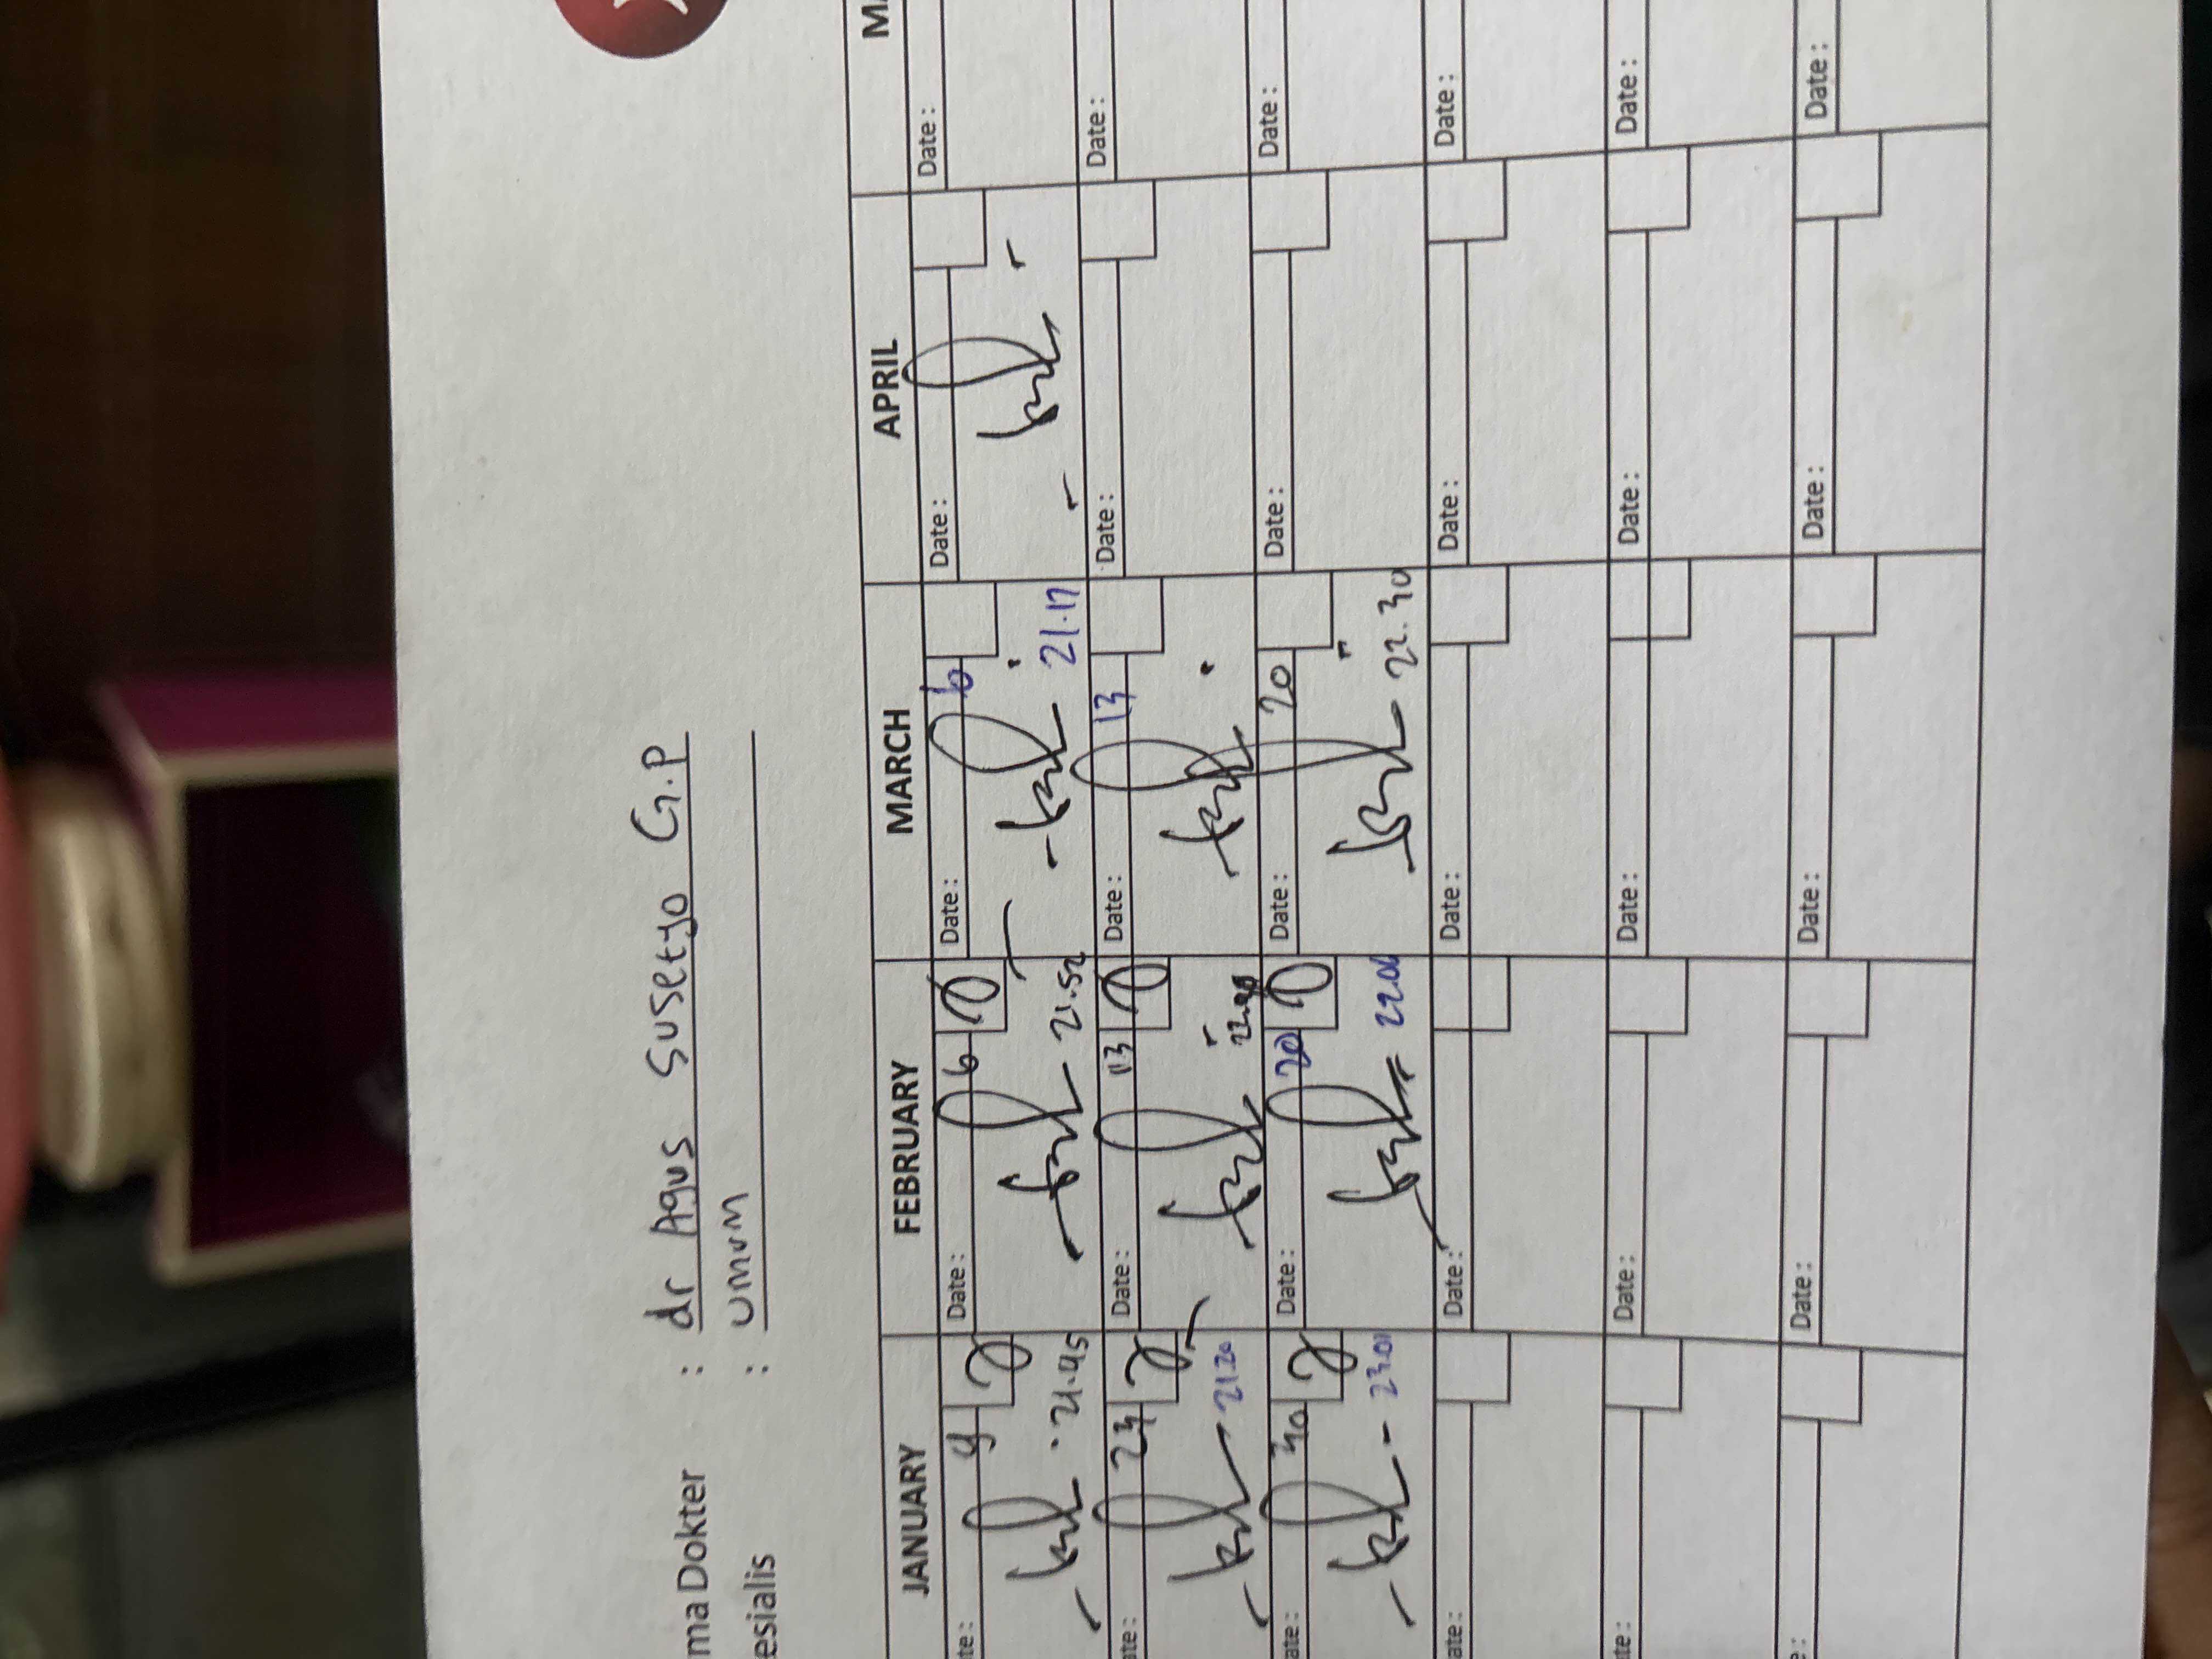 ma Dokter : dr Agus Susetyo G.P
esialis : umum
JANUARY FEBRUARY MARCH APRIL MA
te: 9 Date: 6 Date: 6 Date: Date:
21.45 21.52 21.17
ate: 23 Date: 13 Date: 13 Date: Date:
21.20
ate: 30 Date: 20 Date: 20 Date: Date:
23.01 22.06 22.30
ate: Date: Date: Date: Date:
te: Date: Date: Date: Date:
e: Date: Date: Date: Date: